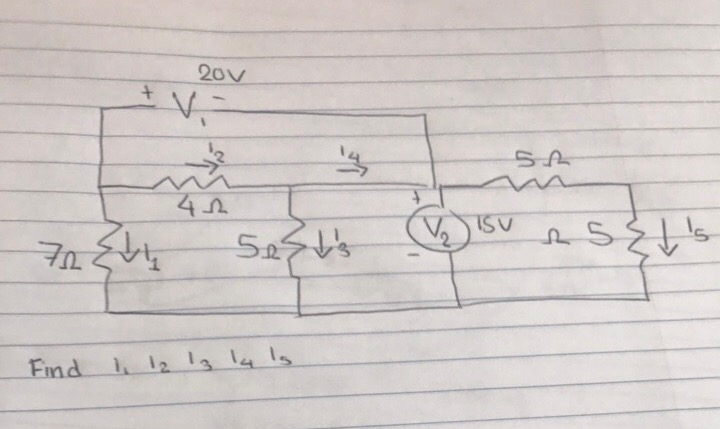 20V
+ V₁ -
i₂ i₄ 5Ω
4Ω
7Ω ↓i₁ 5Ω ↓i₃ + V₂ - 15V Ω 5 ↓ i₅
Find i₁ i₂ i₃ i₄ i₅